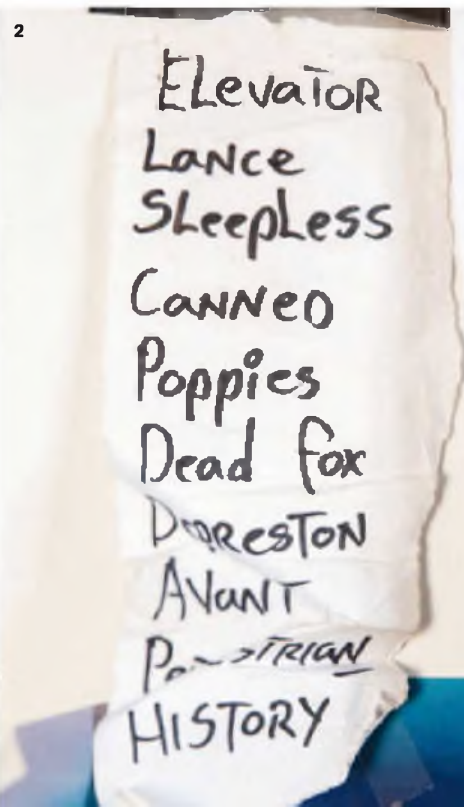 2
ELevaToR
LaNce
SLeepLess
CaNNeD
Poppies
Dead fox
DepResToN
AVaNT
HISToRY